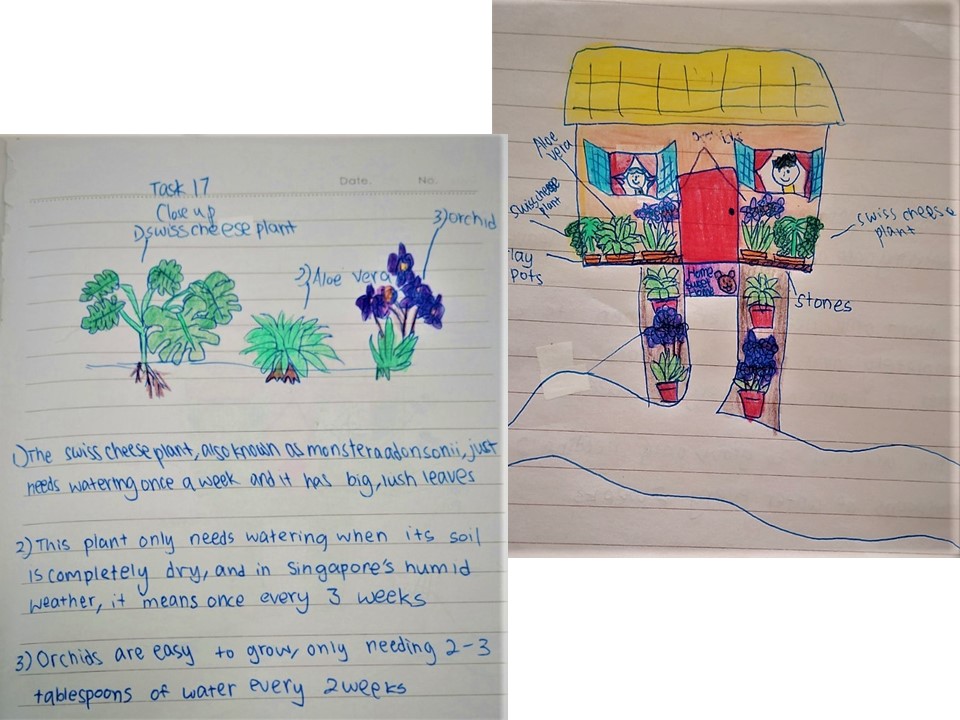 Task 17
Date.
No.
Close up
1) swiss cheese plant
2) Aloe vera
3) orchid
1) The swiss cheese plant, also known as monstera adonsonii, just
needs watering once a week and it has big, lush leaves
2) This plant only needs watering when its soil
is completely dry, and in Singapore's humid
weather, it means once every 3 weeks
3) Orchids are easy to grow, only needing 2-3
tablespoons of water every 2 weeks
Aloe
vera
swiss cheese
plant
lay
pots
Home
sweet
Home
swiss cheese
plant
stones